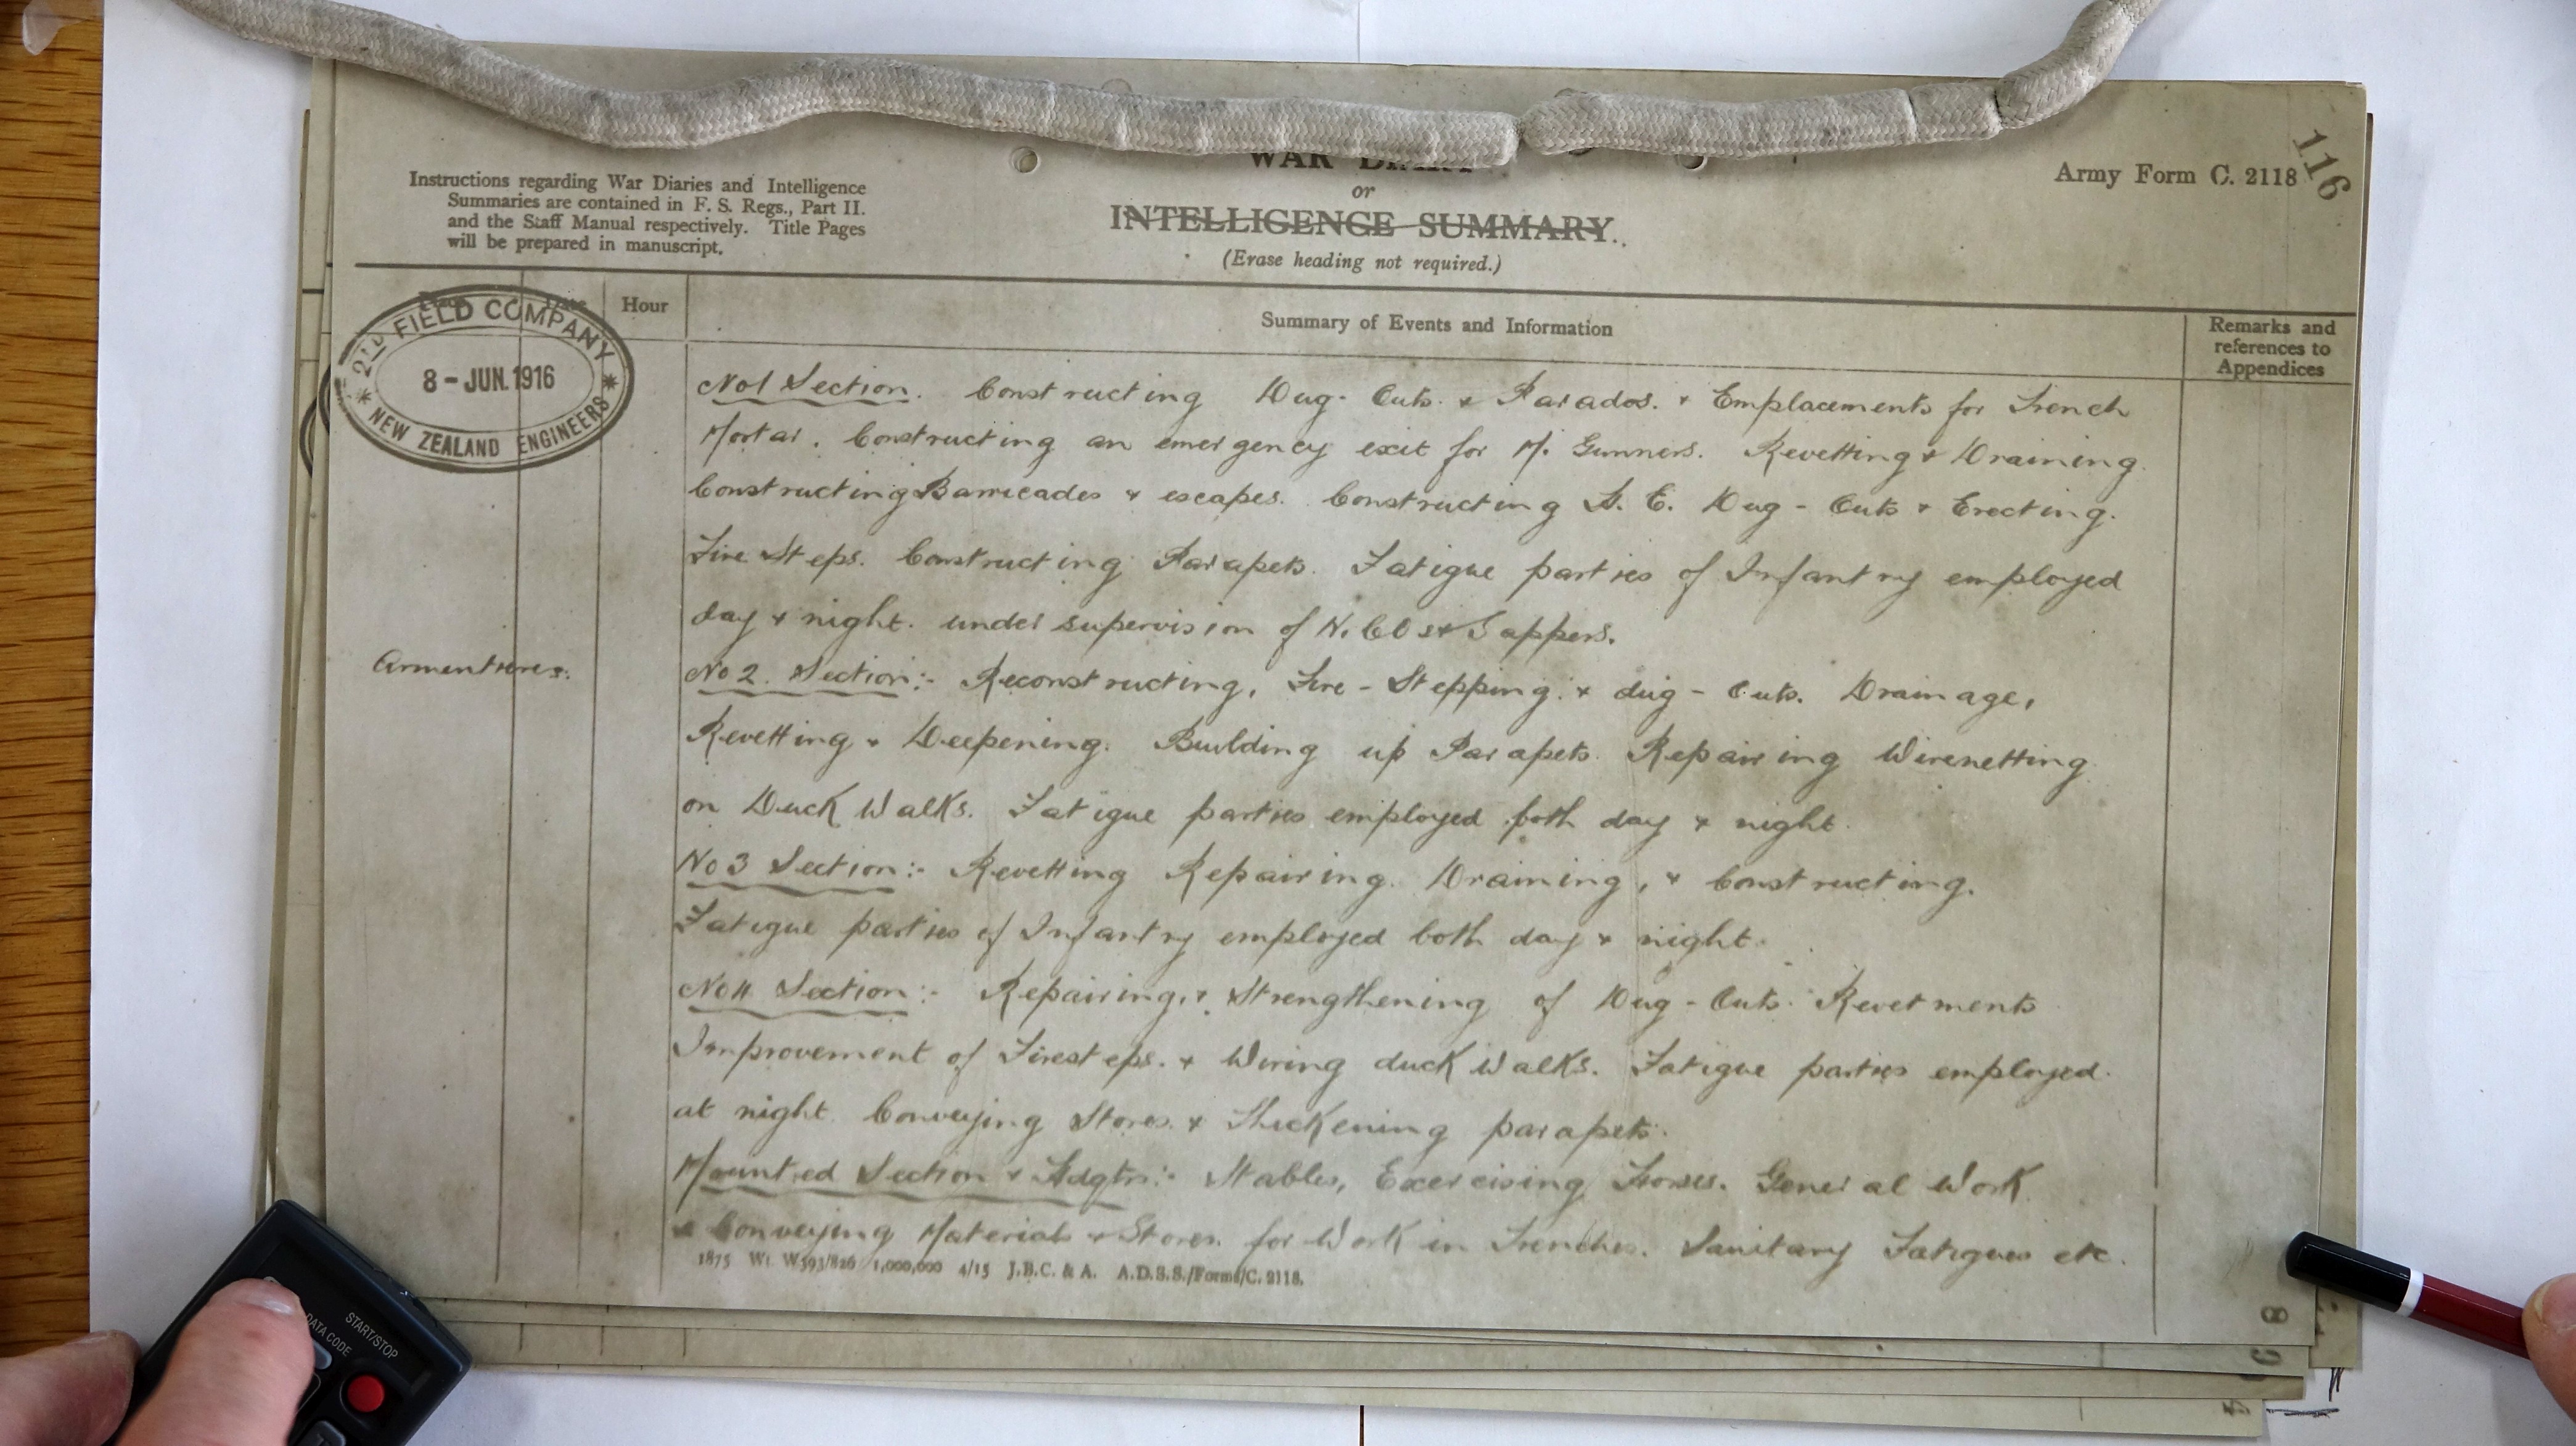 WAR DIARY
or
INTELLIGENCE SUMMARY.
(Erase heading not required.)
Instructions regarding War Diaries and Intelligence
Summaries are contained in F. S. Regs., Part II.
and the Staff Manual respectively. Title Pages
will be prepared in manuscript.
Army Form C. 2118
116
Place Date Hour
Summary of Events and Information
Remarks and
references to
Appendices
2ND FIELD COMPANY
8 - JUN. 1916
NEW ZEALAND ENGINEERS
Armentieres.
No 1 Section. Constructing Dug-Outs. & Parados. & Emplacements for Trench
Mortar. Constructing an emergency exit for M. Gunners. Revetting & Draining.
Constructing Barricades & escapes. Constructing H. E. Dug-Outs & Erecting.
Fire Steps. Constructing Parapets. Fatigue parties of Infantry employed
day & night. under supervision of N.C.Os & Sappers.
No 2. Section:- Reconstructing, Fire-Stepping. & dug-Outs. Drainage,
Revetting & Deepening. Building up Parapets. Repairing Wirenetting
on Duck Walks. Fatigue parties employed both day & night.
No 3 Section:- Revetting Repairing. Draining, & Constructing.
Fatigue parties of Infantry employed both day & night.
No 4 Section:- Repairing, & Strengthening of Dug-Outs. Revetments
Improvement of Firesteps. & Wiring duck Walks. Fatigue parties employed.
at night. Conveying Stores. & Thickening parapets.
Mounted Section & Hdqtrs:- Stables, Exercising Horses. General Work
& Conveying Materials & Stores. for Work in Trenches. Sanitary Fatigues etc.
1875 Wt. W593/826 1,000,000 4/15 J.B.C. & A. A.D.S.S./Forms/C. 2118.
8
START/STOP
DATA CODE